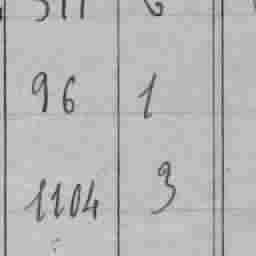 96 1
1104 3